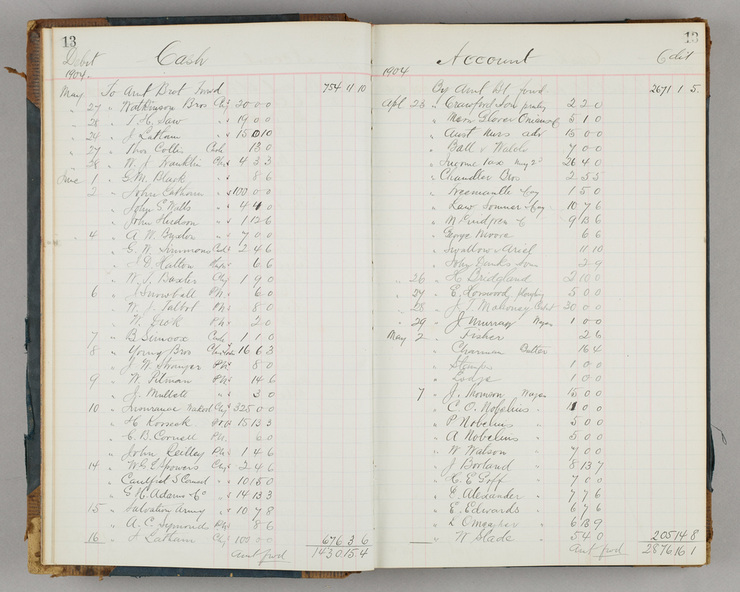 13
Debit Cash
1904.
May To Amt Brot Forwd 754 11 10
" 27 " Watkinson Bros Chq 30 0 0
" 28 " T. H. Saw " 19 0 0
" 29 " J Latham " 15 0 10
" 27 " Thos Collis Cash 18 0
" 28 " W. J. Franklin Chq 4 3 3
June 1 " G. M. Black " 8 6
2 " John Calhoun " 100 0 0
" John S Watts " 4 4 0
" John Hudson " 1 12 6
" 4 " A W Bysdon " 7 0 0
" E. W. Simmons Cash 2 4 6
" Hatton 6 6
" W. J. Baxter Chq 1 9 0
6 " J Snowball Ph. 6 0
" W. J. Talbot Ph. 8 0
" Dick Ph. 2 0
7 " B. Simcox Cash 1 1 0
8 " Young Bros 16 6 3
" J W Stranger 8 0
9 " W. Pitman 14 6
" J. Mullett " 3 0
10 " Insurance Chq 325 0 0
" H Koosook 15 13 3
" C. B. Cornell Ph. 6 0
" John Reilley Ph 1 4 6
14 " W. G. Spowers Chq 2 4 6
" Caulfield S Council " 10 15 0
" E. H. Adams & Co " 14 13 3
15 " Salvation Army " 10 7 8
" A. C. Symonds 8 6
16 " J Latham Chq 100 0 0 676 3 6
Amt fwd 1430 15 4
13
Account Cdit
1904
By Amt Bt forwd 2671 1 5
Apl 23 " Crawford & Son 2 2 0
" 5 1 0
" Aust Nurs adv 15 0 0
" Ball & Welch 7 0 0
" Income Tax 26 4 0
" Chandler Bros 2 5 3
" Treemantle & Coy 1 5 0
" Law Somner & Coy 10 7 6
" McEwen & Co 9 13 6
" George Moore 6 6
" Swallow & Ariel 11 10
" John Danks & Son 2 9
" 26 " H Bridgland 2 10 0
" 27 " E. Horwood 5 0 0
" 28 " J. J Mahoney 30 0 0
" 29 " J. Murray Wages 1 0 0
May 2 " Fisher 2 6
" Charman Butter 16 4
" Stamps 1 0 0
" Lodge 1 0 0
7 " J. Thomson Wages 15 0 0
" C. O. Nobelius " 4 0 0
" P Nobelius " 5 0 0
" A Nobelius " 5 0 0
" W Watson " 7 0 0
" J Borland " 8 13 7
" C. E Goff " 7 0 0
" E. Alexander " 7 7 6
" E. Edwards " 6 7 6
" L Omeagher " 6 13 9
" W Slade " 5 4 0 205 14 8
Amt fwd 2876 16 1